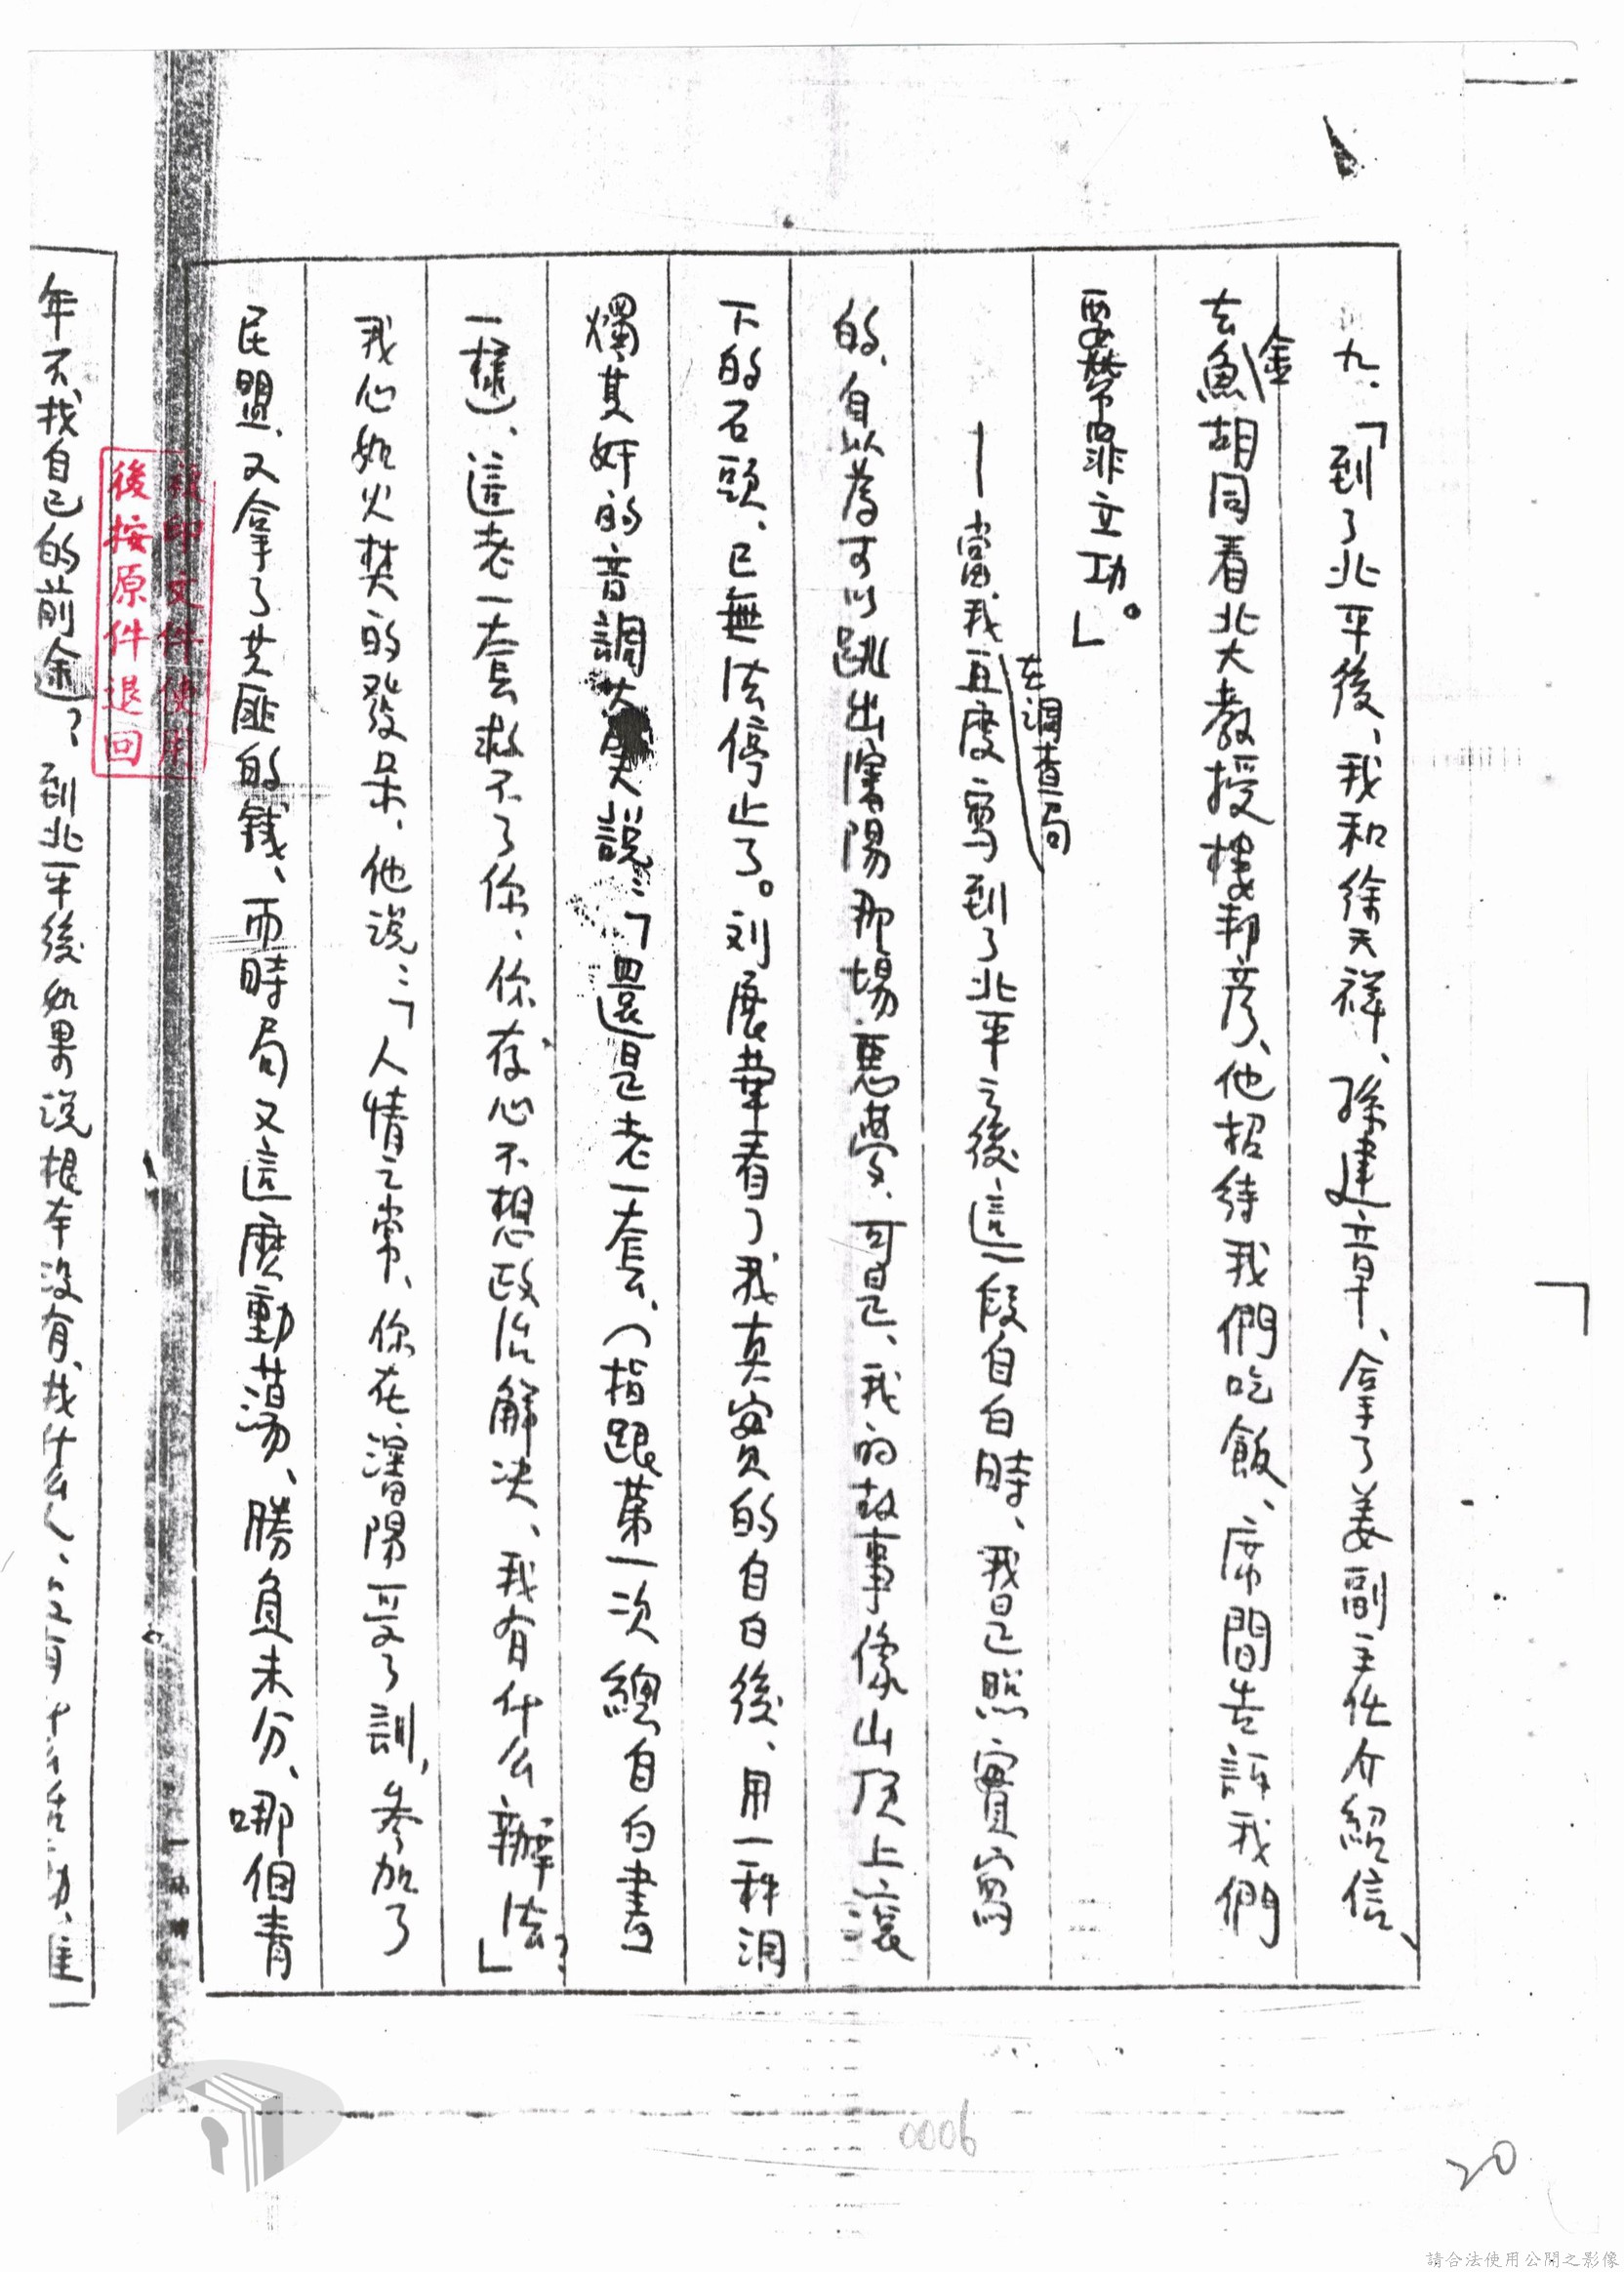 九、「到了北平後、我和徐天祥、孫建章、拿了姜副主任介紹信、
去金魚胡同看北大教授樓邦彥、他招待我們吃飯、席間告訴我們
要帶罪立功。」
—當我在調查局再度寫到了北平之後這一段自白時、我是照實寫
的、自以為可以跳出瀋陽那場惡夢、可是、我的故事像山頂上滾
下的石頭、已無法停止了。刘展華看了我真實的自白後、用一种洞
燭其奸的音調大笑說：「還是老一套、（指跟第一次總自白書
一樣）、這老一套救不了你、你存心不想政治解決、我有什么辦法？」
我心如火焚的發呆、他說：「人情之常、你在瀋陽受了訓，參加了
民盟、又拿了共匪的錢、而時局又這麼動蕩、勝負未分、哪個青
年不找自己的前途？到北平後如果說根本沒有找什么人、
複印文件使用
後按原件退回
0006
20
請合法使用公開之影像